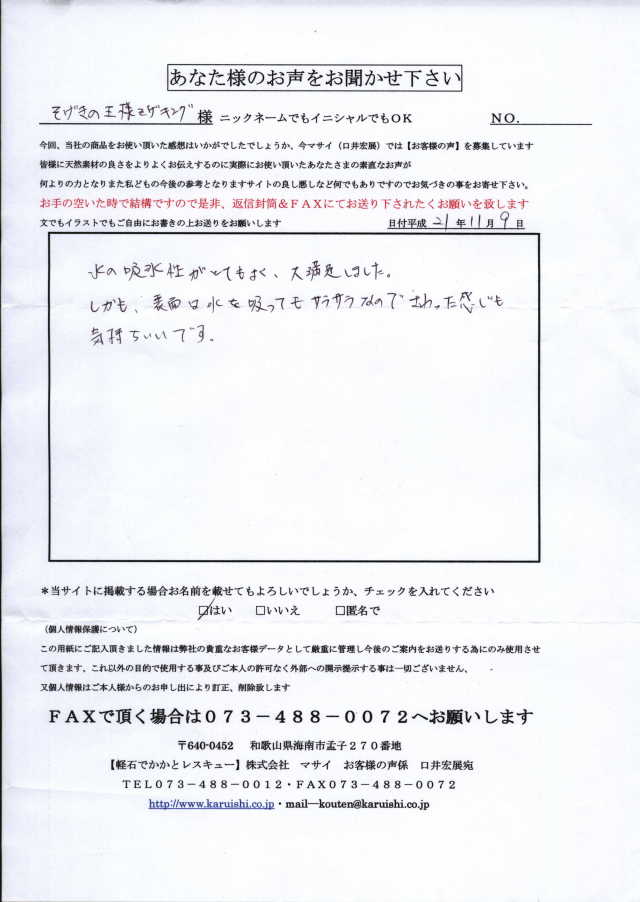 あなた様のお声をお聞かせ下さい
そげきの王様そげキング 様 ニックネームでもイニシャルでもOK NO.
今回、当社の商品をお使い頂いた感想はいかがでしたでしょうか、今マサイ（口井宏展）では【お客様の声】を募集しています
皆様に天然素材の良さをよりよくお伝えするのに実際にお使い頂いたあなたさまの素直なお声が
何よりの力となりまた私どもの今後の参考となりますサイトの良し悪しなど何でもありですのでお気づきの事をお寄せ下さい。
お手の空いた時で結構ですので是非、返信封筒＆ＦＡＸにてお送り下されたくお願いを致します
文でもイラストでもご自由にお書きの上お送りをお願いします 日付平成 21 年 11 月 9 日
水の吸水性がとてもよく、大満足しました。
しかも、表面は水を吸ってもサラサラなのでさわった感じも
気持ちいいです。
＊当サイトに掲載する場合お名前を載せてもよろしいでしょうか、チェックを入れてください
☑はい □いいえ □匿名で
（個人情報保護について）
この用紙にご記入頂きました情報は弊社の貴重なお客様データとして厳重に管理し今後のご案内をお送りする為にのみ使用させ
て頂きます、これ以外の目的で使用する事及びご本人の許可なく外部への開示提示する事は一切ございません、
又個人情報はご本人様からのお申し出により訂正、削除致します
ＦＡＸで頂く場合は０７３－４８８－００７２へお願いします
〒640-0452 和歌山県海南市孟子２７０番地
【軽石でかかとレスキュー】株式会社 マサイ お客様の声係 口井宏展宛
ＴＥＬ０７３－４８８－００１２・ＦＡＸ０７３－４８８－００７２
http://www.karuishi.co.jp・mail―kouten@karuishi.co.jp